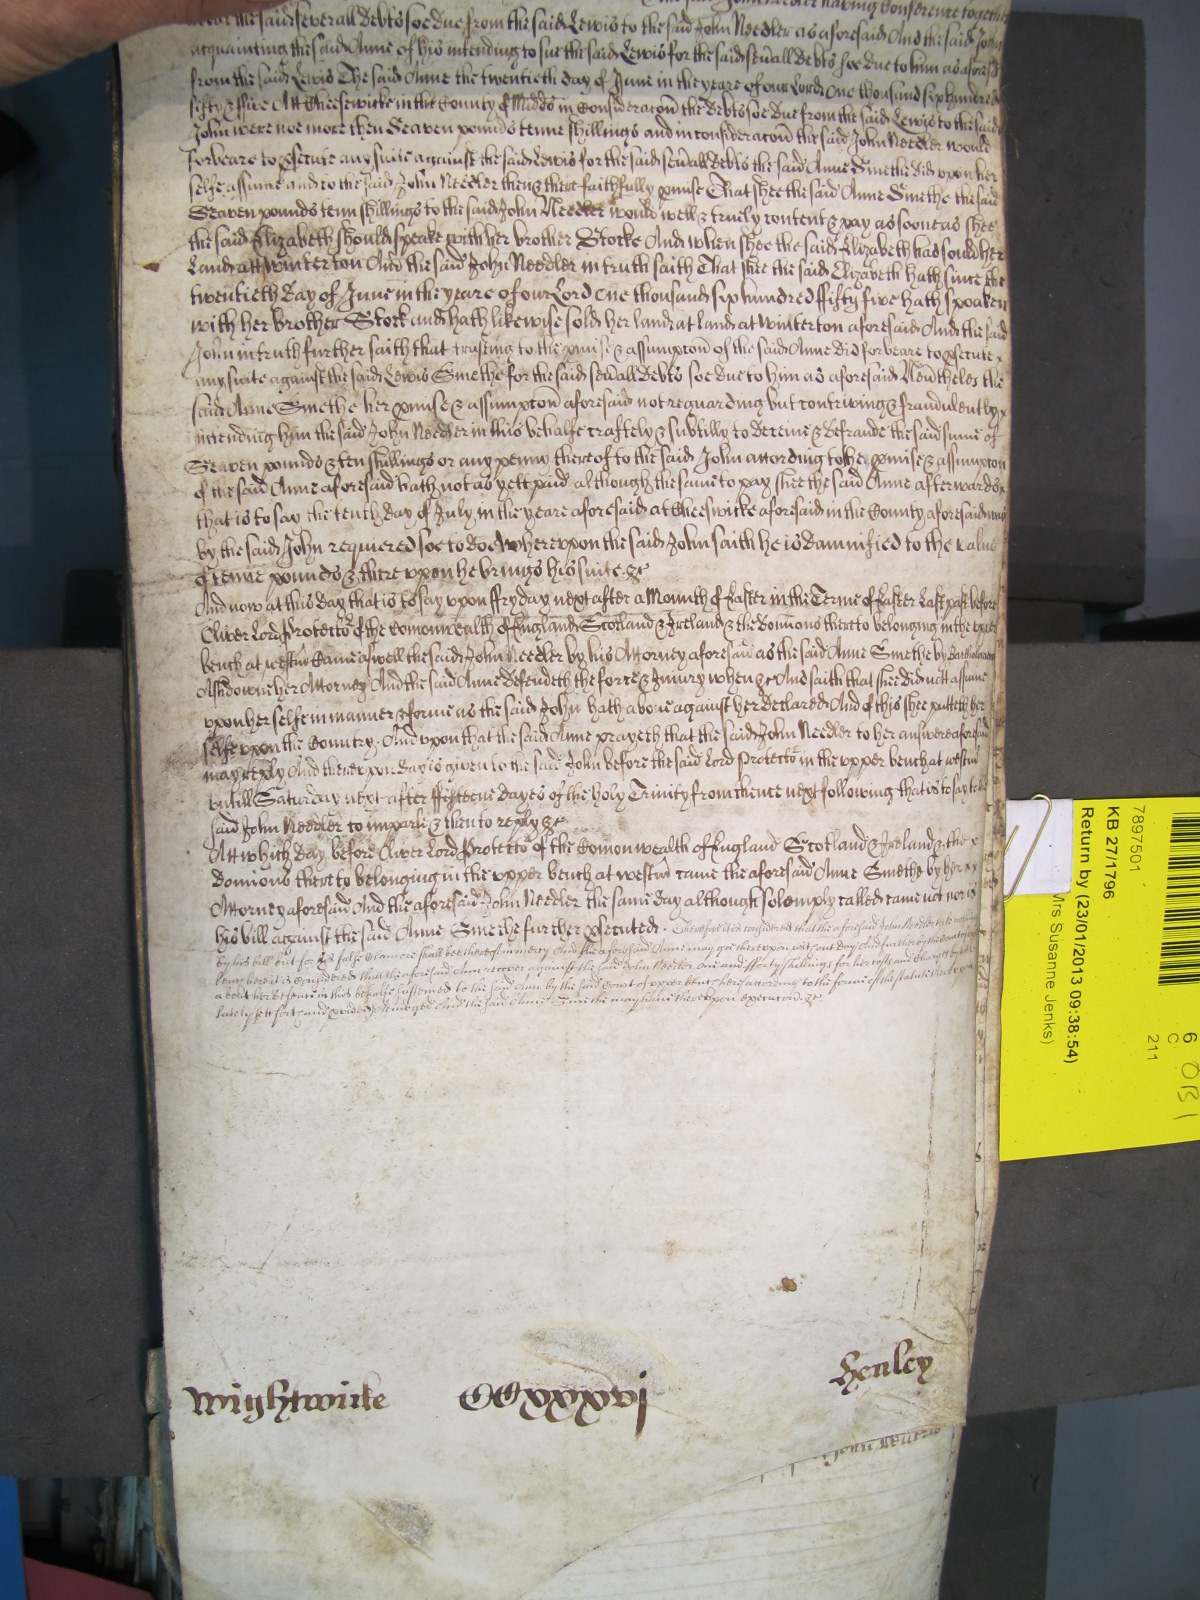 the said John Needler having Conference together
about the said severall debts soe due from the said Lewis to the said John Needler as aforesaid And the said John
acquainting the said Anne of his intending to sue the said Lewis for the said sevall debts soe due to him as aforesd
from the said Lewis The said Anne the twentieth day of June in the yeare of our Lord One thousand six hundred
fifty & ffive Att Cheeswicke in the County of Midds in Consideracon the debts soe due from the said Lewis to the said
John were noe more then Seaven pounds tenne shillings and in consideracon the said John Needler would
forbeare to psecute any suite against the said Lewis for the said sevall debts the said Anne Smethe did upon her
selfe assume and to the said John Needler then & there faithfully pmise That shee the said Anne Smethe the said
Seaven pounds tenn shillings to the said John Needler would well & truely content & pay as soone as shee
the said Elizabeth should speake with her brother Storke And when shee the said Elizabeth had sould her
Land att Winterton And the said John Needler in truth saith That shee the said Elizabeth hath since the
twentieth day of June in the yeare of our Lord One thousand six hundred ffifty five hath spoaken
with her brother Stork and hath likewise sold her land at land at Winterton aforesaid And the said
John in truth further saith that trusting to the pmise & assumpcon of the said Anne did forbeare to psecute x
any suite against the said Lewis Smethe for the said sevall debts soe due to him as aforesaid Nevtheles the
said Anne Smethe her pmise & assumpcon aforesaid not reguarding but contriving & fraudulently x
intending him the said John Needler in this behalfe craftely & subtilly to deceive & defraude the said sume of
Seaven pounds & ten shillings or any penny thereof to the said John according to the pmise & assumpcon
of the said Anne aforesaid hath not as yett paid although the same to pay shee the said Anne afterwards x
that is to say the tenth day of July in the yeare aforesaid at Cheeswicke aforesaid in the County aforesaid was
by the said John requiered soe to doe Whereupon the said John saith he is damnified to the value
of tenne pounds & thereupon he brings his suite &c
And now at this day that is to say upon ffryday next after a Mounth of Easter in the Terme of Easter Last past before
Oliver Lord Protector of the Comonwealth of England Scotland & Ireland & the Domions thereto belonging in the upper
bench at westm Came aswell the said John Needler by his Attorney aforesaid as the said Anne Smethe by Bartholomew
Ashdowne her Attorney And the said Anne defendeth the force & Injury when &c And saith that shee did not assume
upon her selfe in manner & forme as the said John hath above against her declared And of this shee putteth her
selfe upon the Country And upon that the said Anne prayeth that the said John Needler to her answere aforesaid
may reply And thereupon day is given to the said John before the said Lord Protector in the upper bench at westm
untill Saturday next after ffifteene dayes of the holy Trinity from thence next following that is to say to the
said John Needler to imparle & then to reply &c
Att which day before Oliver Lord Protector of the Comonwealth of England Scotland & Ireland & the x
Domions thereto belonging in the upper bench at westm came the aforesaid Anne Smethe by her x x
Attorney aforesaid And the aforesaid John Needler the same day although solemply called came not nor is
his bill against the said Anne Smethe further psecuted. Therefore it is considered that the aforesaid John Needler take nothing
by his bill but for his false clamore shall bee thereof in mercy And the aforesaid Anne may goe thereupon without day And further by the court
here it is considered that the aforesaid Ann recover against the said John Needler one and fforty shillings for her costs and charges by her
about her defence in this behalfe susteined to the said Ann by the said Court of upper bench here according to the forme of the statute thereupon
lately sett forth and provided adiudged And the said Anne Smethe may have thereupon execucon &c
Wightwicke CCxxxvj Henley
7897501
KB 27/1796
Return by (23/01/2013 09:38:54)
Mrs Susanne Jenks)
6
C
211